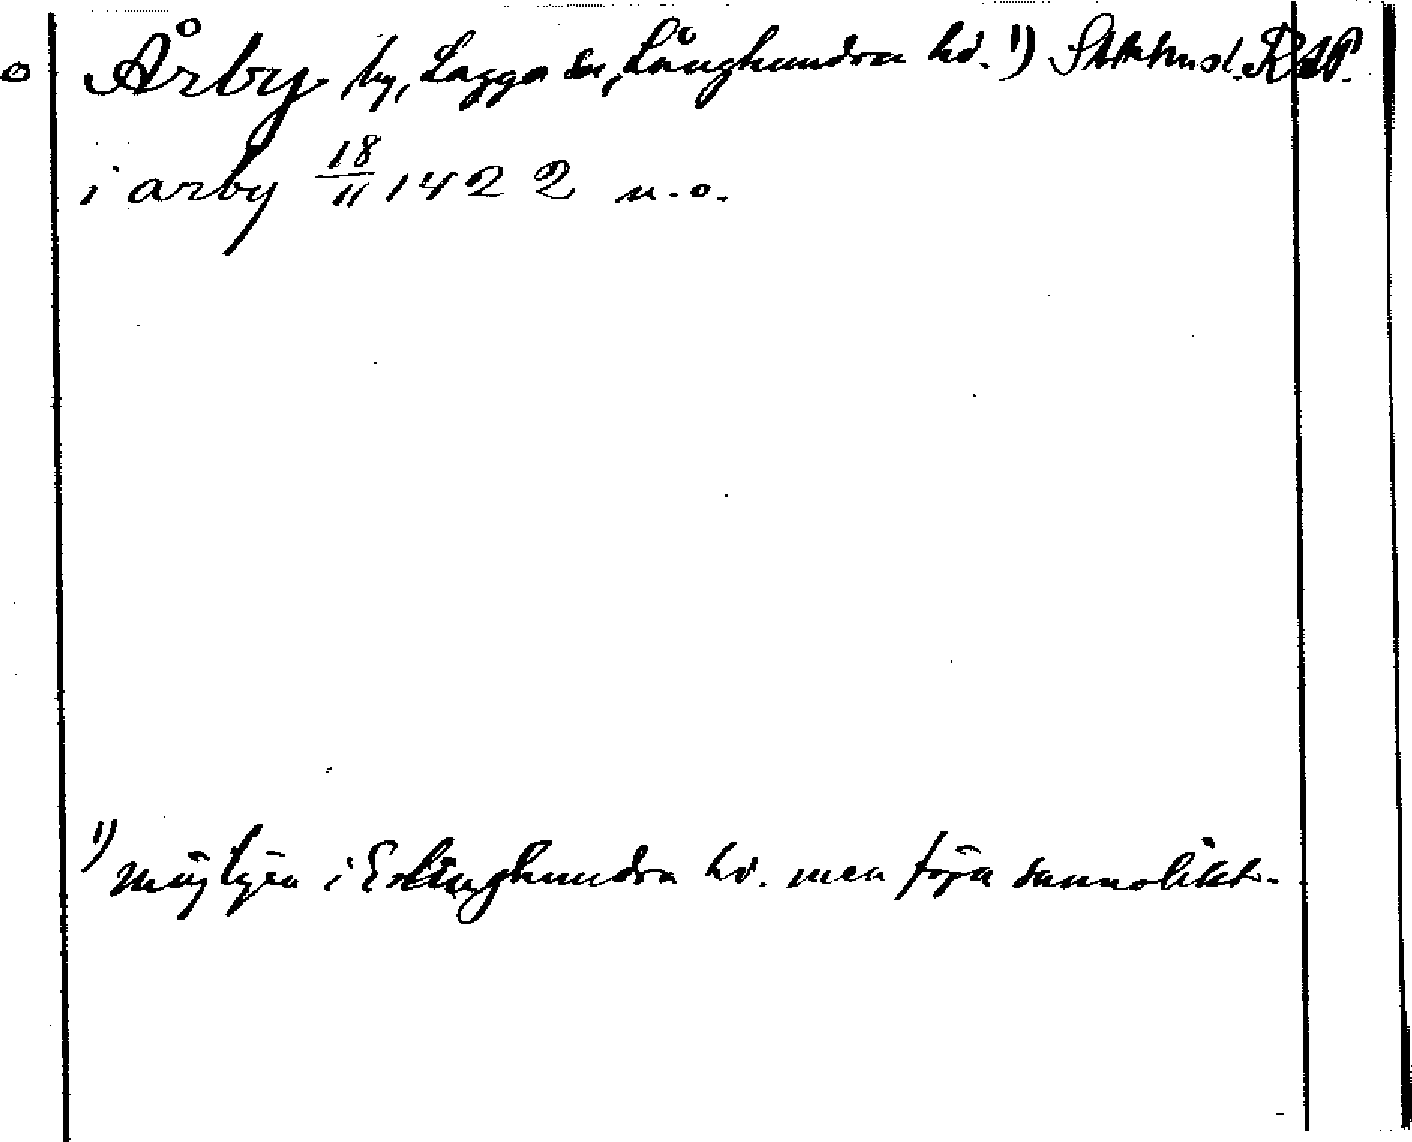 o Årby by, Lagga sn, Långhundra hd. 1) Sthlms l. RAP.
i arby 18/11 1422 u.o.
1) möjligen i Erlinghundra hd. men föga sannolikt.